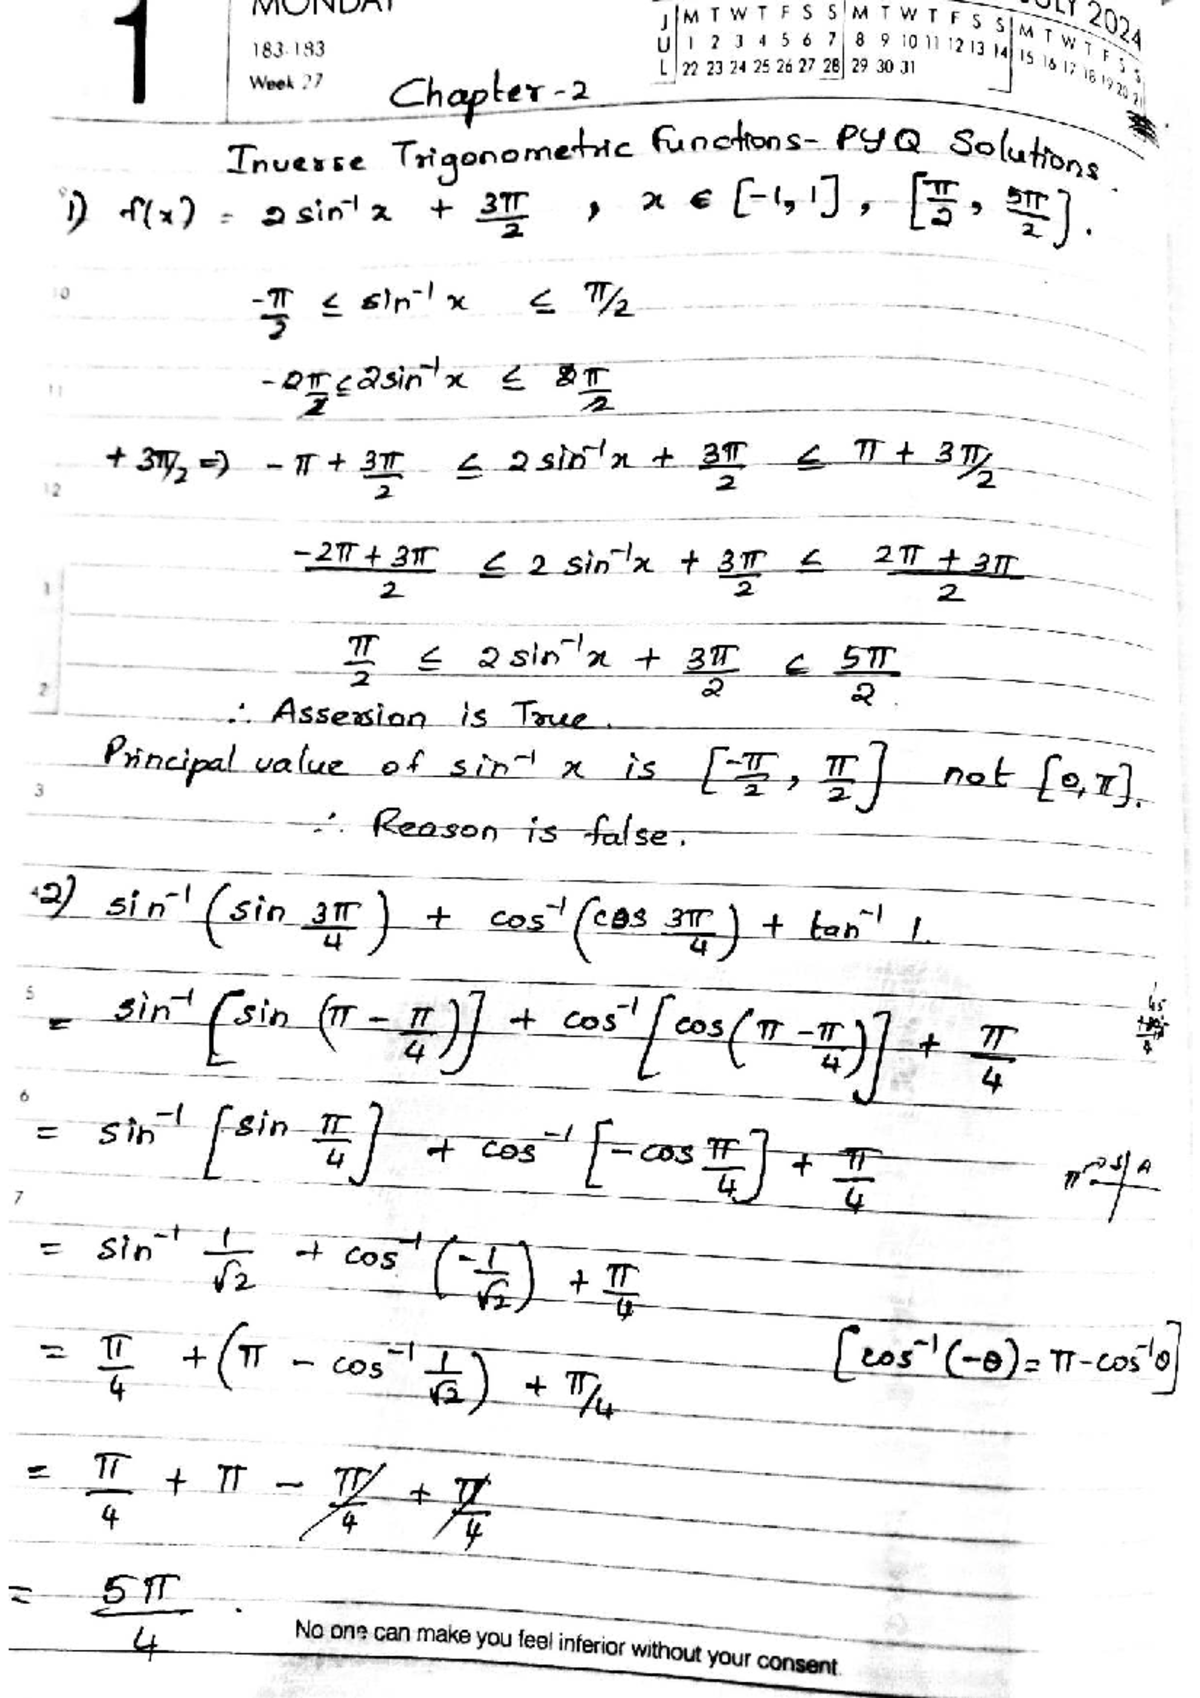 1
MONDAY
183-183
Week 27
JULY 2024
JUL
M T W T F S S M T W T F S S M T W T F S S
1 2 3 4 5 6 7 8 9 10 11 12 13 14 15 16 17 18 19 20 21
22 23 24 25 26 27 28 29 30 31
Chapter-2
Inverse Trigonometric Functions- PYQ Solutions.
1) f(x) = 2 sin⁻¹ x + 3π/2 , x ∈ [-1, 1] , [π/2 , 5π/2].
10
-π/2 ≤ sin⁻¹ x ≤ π/2
11
-2π/2 ≤ 2sin⁻¹ x ≤ 2π/2
+ 3π/2 ⇒ - π + 3π/2 ≤ 2 sin⁻¹x + 3π/2 ≤ π + 3π/2
12
(-2π + 3π)/2 ≤ 2 sin⁻¹x + 3π/2 ≤ (2π + 3π)/2
1
π/2 ≤ 2 sin⁻¹x + 3π/2 ≤ 5π/2
2
∴ Assersion is True.
Principal value of sin⁻¹ x is [-π/2 , π/2] not [0, π].
3
∴ Reason is false.
2) sin⁻¹ (sin 3π/4) + cos⁻¹ (cos 3π/4) + tan⁻¹ 1.
5
= sin⁻¹ [sin (π - π/4)] + cos⁻¹ [cos (π - π/4)] + π/4
6
= sin⁻¹ [sin π/4] + cos⁻¹ [-cos π/4] + π/4
S A
7
= sin⁻¹ 1/√2 + cos⁻¹ (-1/√2) + π/4
= π/4 + (π - cos⁻¹ 1/√2) + π/4 [cos⁻¹ (-θ) = π - cos⁻¹θ]
= π/4 + π - π/4 + π/4
= 5π/4 .
No one can make you feel inferior without your consent.